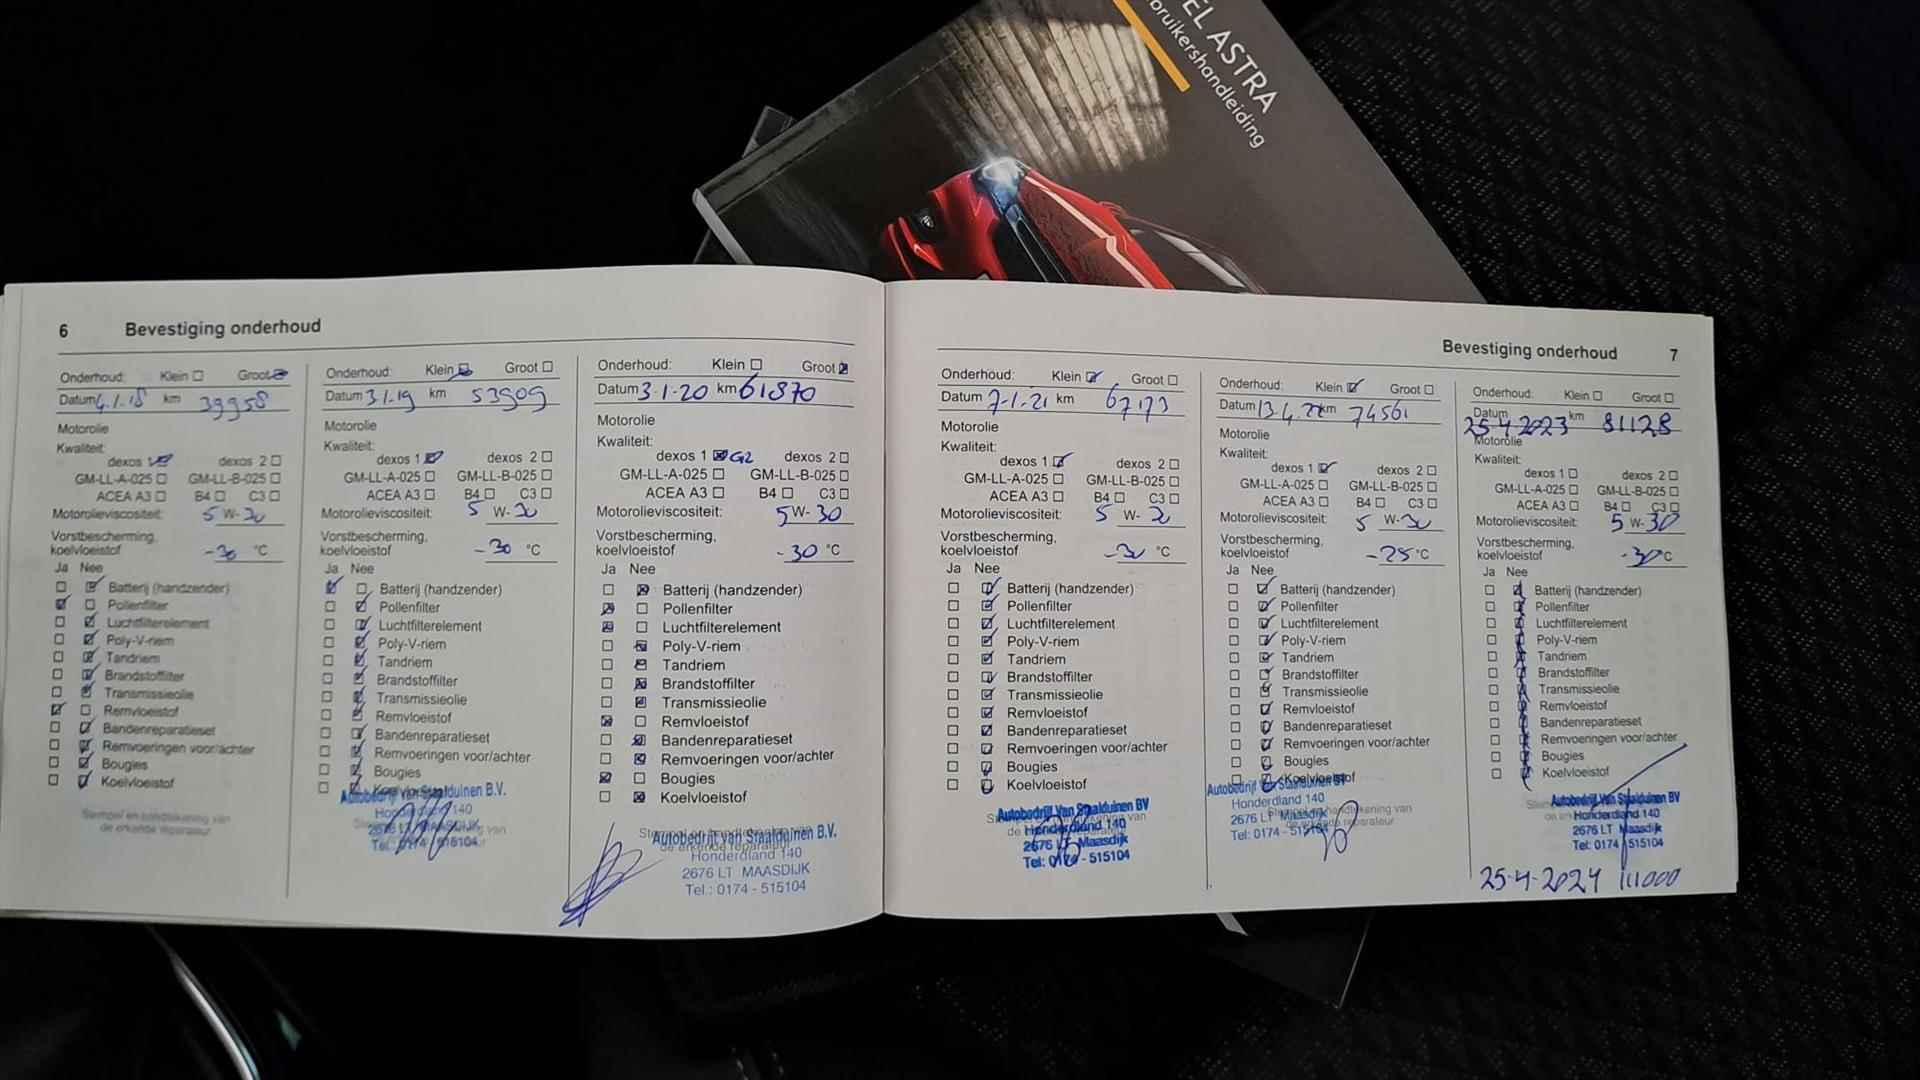 EL ASTRA
bruikershandleiding
6 Bevestiging onderhoud
Onderhoud: Klein Groot
Datum 4.1.18 km 39958
Motorolie
Kwaliteit:
dexos 1 dexos 2
GM-LL-A-025 GM-LL-B-025
ACEA A3 B4 C3
Motorolieviscositeit: 5 W-30
Vorstbescherming,
koelvloeistof -30 °C
Ja Nee
Batterij (handzender)
Pollenfilter
Luchtfilterelement
Poly-V-riem
Tandriem
Brandstoffilter
Transmissieolie
Remvloeistof
Bandenreparatieset
Remvoeringen voor/achter
Bougies
Koelvloeistof
Stempel en handtekening van
de erkende reparateur
Onderhoud: Klein Groot
Datum 3.1.19 km 53909
Motorolie
Kwaliteit:
dexos 1 dexos 2
GM-LL-A-025 GM-LL-B-025
ACEA A3 B4 C3
Motorolieviscositeit: 5 W-30
Vorstbescherming,
koelvloeistof -30 °C
Ja Nee
Batterij (handzender)
Pollenfilter
Luchtfilterelement
Poly-V-riem
Tandriem
Brandstoffilter
Transmissieolie
Remvloeistof
Bandenreparatieset
Remvoeringen voor/achter
Bougies
Koelvloeistof
Autobedrijf Van Staalduinen B.V.
Honderdland 140
2676 LT MAASDIJK
Tel.: 0174 - 515104
Onderhoud: Klein Groot
Datum 3-1-20 km 61870
Motorolie
Kwaliteit:
dexos 1 G2 dexos 2
GM-LL-A-025 GM-LL-B-025
ACEA A3 B4 C3
Motorolieviscositeit: 5 W-30
Vorstbescherming,
koelvloeistof -30 °C
Ja Nee
Batterij (handzender)
Pollenfilter
Luchtfilterelement
Poly-V-riem
Tandriem
Brandstoffilter
Transmissieolie
Remvloeistof
Bandenreparatieset
Remvoeringen voor/achter
Bougies
Koelvloeistof
Stempel en handtekening van
de erkende reparateur
Autobedrijf Van Staalduinen B.V.
Honderdland 140
2676 LT MAASDIJK
Tel.: 0174 - 515104
Bevestiging onderhoud 7
Onderhoud: Klein Groot
Datum 7-1-21 km 67173
Motorolie
Kwaliteit:
dexos 1 dexos 2
GM-LL-A-025 GM-LL-B-025
ACEA A3 B4 C3
Motorolieviscositeit: 5 W-30
Vorstbescherming,
koelvloeistof -30 °C
Ja Nee
Batterij (handzender)
Pollenfilter
Luchtfilterelement
Poly-V-riem
Tandriem
Brandstoffilter
Transmissieolie
Remvloeistof
Bandenreparatieset
Remvoeringen voor/achter
Bougies
Koelvloeistof
Autobedrijf Van Staalduinen BV
Honderdland 140
2676 LT Maasdijk
Tel: 0174 - 515104
Onderhoud: Klein Groot
Datum 13.4.22 km 74561
Motorolie
Kwaliteit:
dexos 1 dexos 2
GM-LL-A-025 GM-LL-B-025
ACEA A3 B4 C3
Motorolieviscositeit: 5 W-30
Vorstbescherming,
koelvloeistof -25 °C
Ja Nee
Batterij (handzender)
Pollenfilter
Luchtfilterelement
Poly-V-riem
Tandriem
Brandstoffilter
Transmissieolie
Remvloeistof
Bandenreparatieset
Remvoeringen voor/achter
Bougies
Koelvloeistof
Autobedrijf Van Staalduinen BV
Honderdland 140
2676 LT Maasdijk
Tel: 0174 - 515104
Onderhoud: Klein Groot
Datum 25 4 2023 km 81128
Motorolie
Kwaliteit:
dexos 1 dexos 2
GM-LL-A-025 GM-LL-B-025
ACEA A3 B4 C3
Motorolieviscositeit: 5 W-30
Vorstbescherming,
koelvloeistof -30°C
Ja Nee
Batterij (handzender)
Pollenfilter
Luchtfilterelement
Poly-V-riem
Tandriem
Brandstoffilter
Transmissieolie
Remvloeistof
Bandenreparatieset
Remvoeringen voor/achter
Bougies
Koelvloeistof
Autobedrijf Van Staalduinen BV
Honderdland 140
2676 LT Maasdijk
Tel: 0174 - 515104
25-4-2024 111000